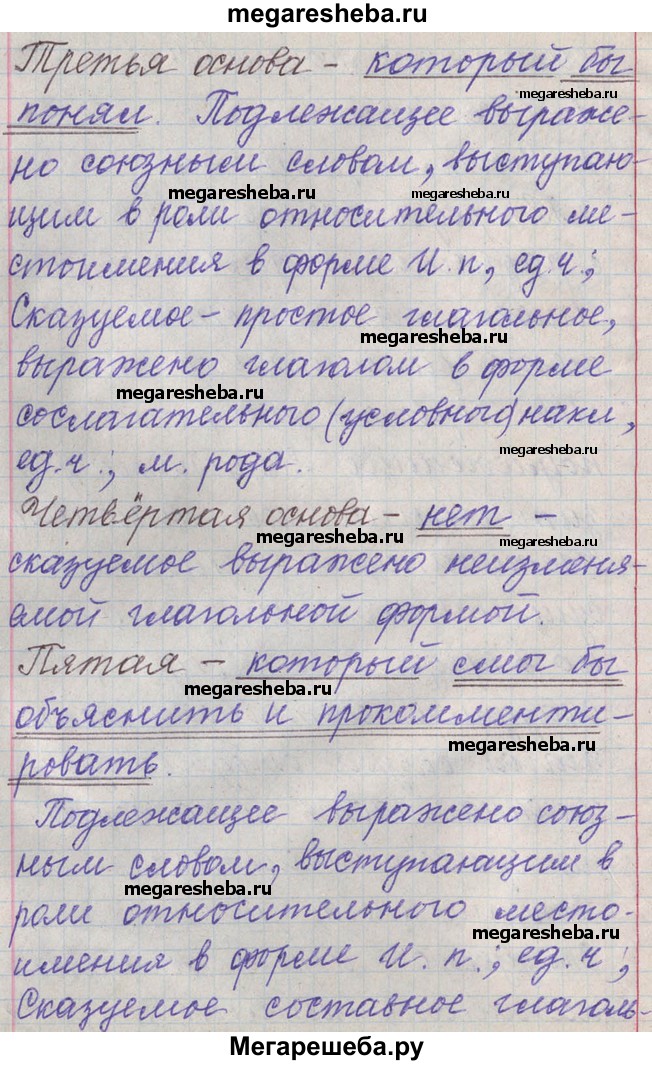 megaresheba.ru
Третья основа - который бы
megaresheba.ru
понял. Подлежащее выраже-
megaresheba.ru
но союзным словом, выступаю-
megaresheba.ru megaresheba.ru
щим в роли относительного ме-
стоимения в форме И.п., ед.ч.;
Сказуемое - простое глагольное,
megaresheba.ru
выражено глаголом в форме
megaresheba.ru
сослагательного (условного) накл,
megaresheba.ru
ед.ч.; м. рода.
Четвёртая основа - нет -
megaresheba.ru megaresheba.ru
сказуемое выражено неизменя-
емой глагольной формой.
Пятая - который смог бы
megaresheba.ru
объяснить и прокомменти-
megaresheba.ru
ровать.
Подлежащее выражено союз-
ным словом, выступающим в
megaresheba.ru
роли относительного место-
megaresheba.ru
имения в форме И.п.; ед.ч;
Сказуемое составное глаголь-
Мегарешеба.ру